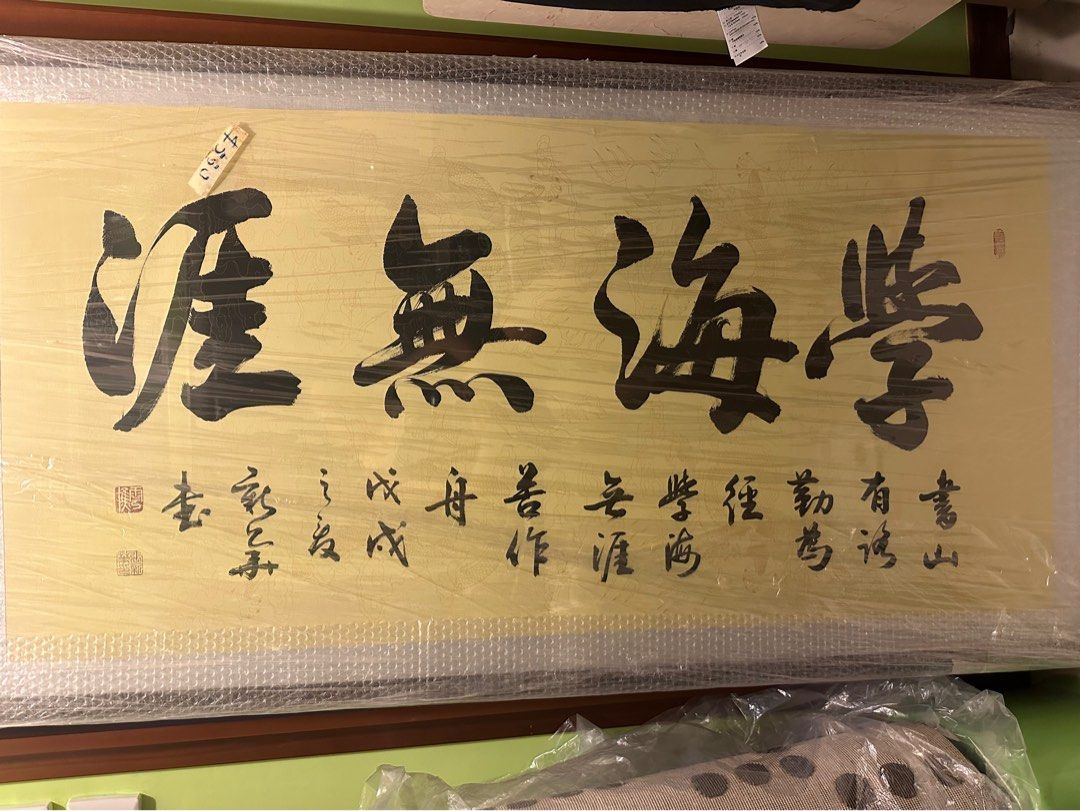 學海無涯
書山
有路
勤為
徑
學海
無涯
苦作
舟
戊戌
之夏
書